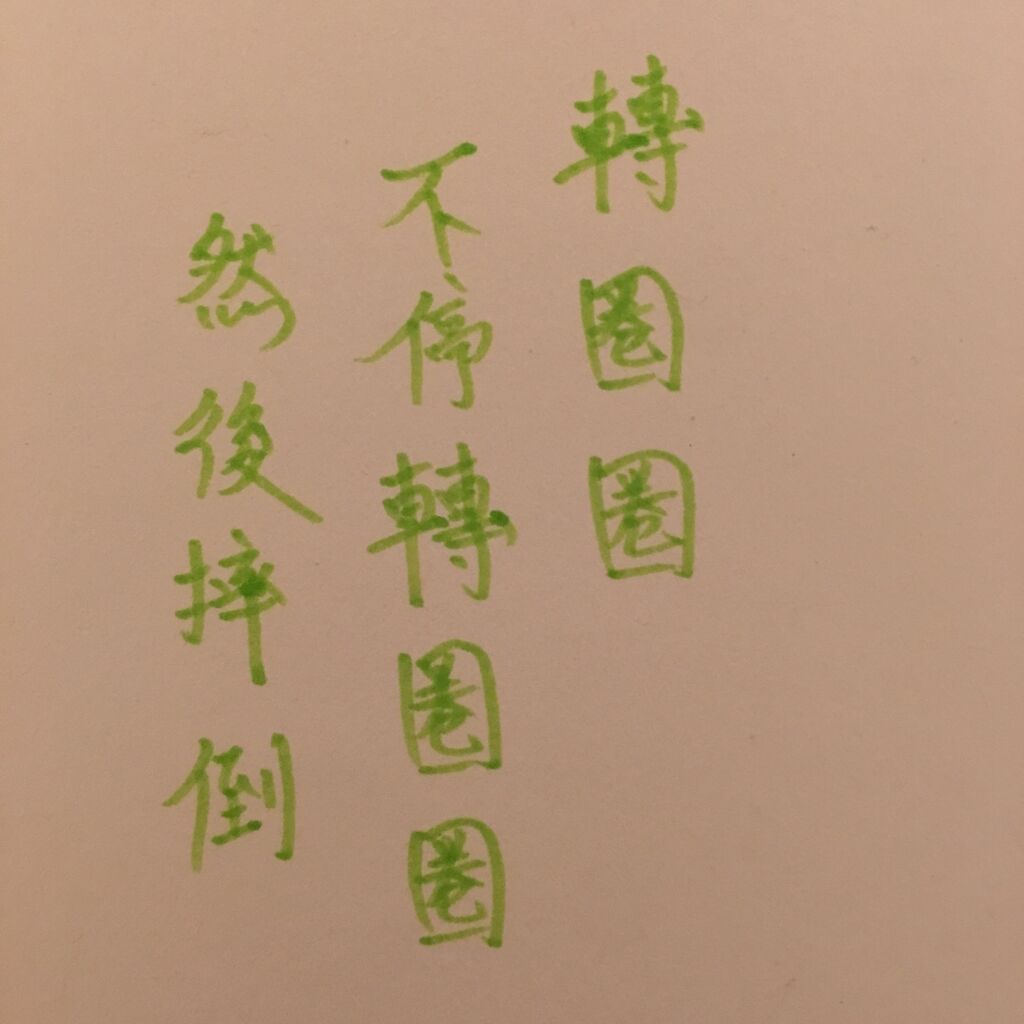 轉圈圈
不停轉圈圈
然後摔倒